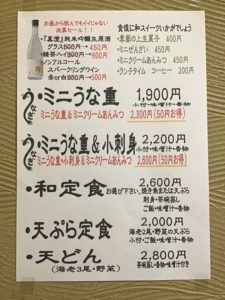 お昼から飲んでもイイじゃない
決算セール!!
・『真澄』純米吟醸生原酒
グラス600円→450円
・緑茶ハイ900円→500円
・ノンアルコール
スパークリングワイン
赤or白 880円→500円
食後に和スイーツいかがでしょう
・季節の上生菓子 400円
・ミニぜんざい 450円
・ミニクリームあんみつ 450円
・ランチタイム コーヒー 200円
うなぎ
・ミニうな重 1,900円
小付・味噌汁・香物
ミニうな重&ミニクリームあんみつ 2,300円(50円お得)
うなぎ
・ミニうな重&小刺身 2,200円
小付・味噌汁・香物
ミニうな重・小刺身&ミニクリームあんみつ 2,600円(50円お得)
・和定食 2,600円
お選び下さい、焼き魚または天ぷら
刺身・茶碗蒸し
ご飯・味噌汁・香物
・天ぷら定食 2,000円
海老2尾・野菜の天ぷら
小付・ご飯・味噌汁・香物
・天どん 2,800円
(海老3尾・野菜)
茶碗蒸し・香物・味噌汁付き